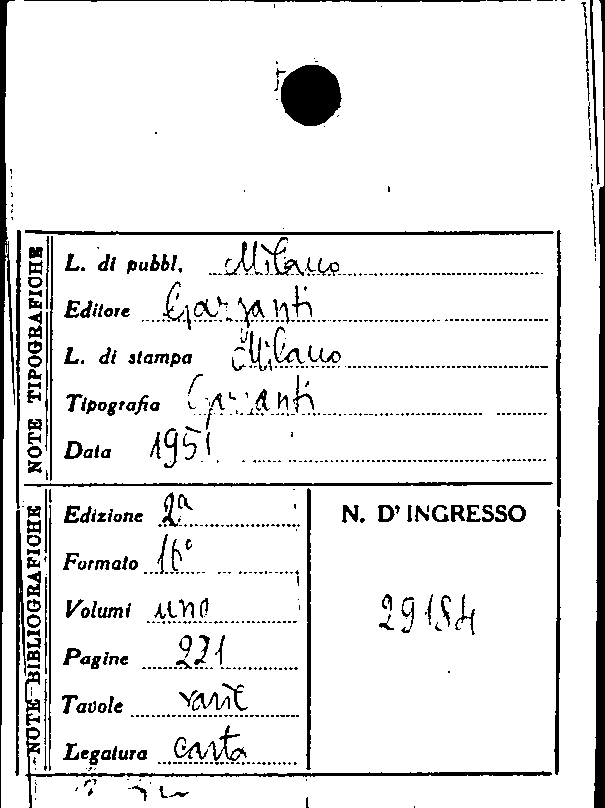 NOTE TIPOGRAFICHE
L. di pubbl. Milano
Editore Garzanti
L. di stampa Milano
Tipografia Garzanti
Data 1951
NOTE BIBLIOGRAFICHE
Edizione 2ª
Formato 16°
Volumi uno
Pagine 221
Tavole varie
Legatura carta
N. D' INGRESSO
29184